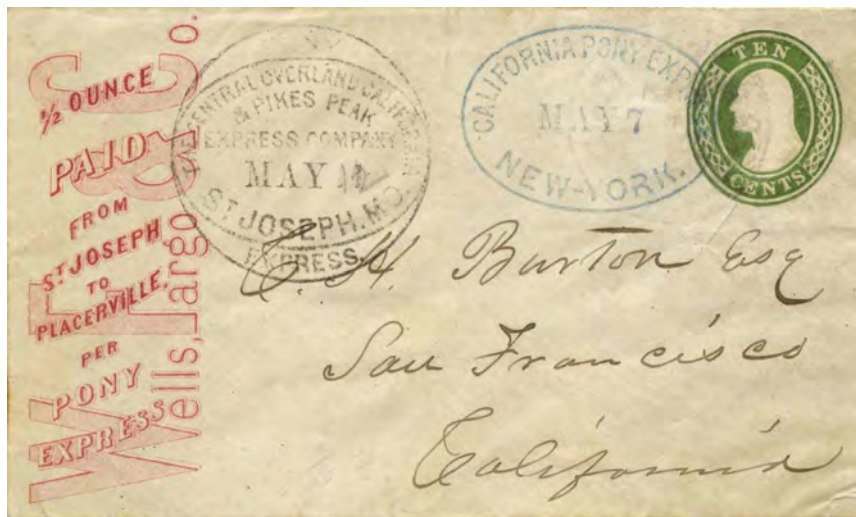 ½ OUNCE
PAID
FROM
ST JOSEPH
TO
PLACERVILLE.
PER
PONY
EXPRESS
Wells, Fargo & Co.
THE CENTRAL OVERLAND CALIFORNIA
& PIKES PEAK
EXPRESS COMPANY
MAY
ST JOSEPH, MO.
EXPRESS.
CALIFORNIA PONY EXPRESS
MAY 7
NEW-YORK.
TEN
CENTS
C. H. Burton Esq
San Francisco
California